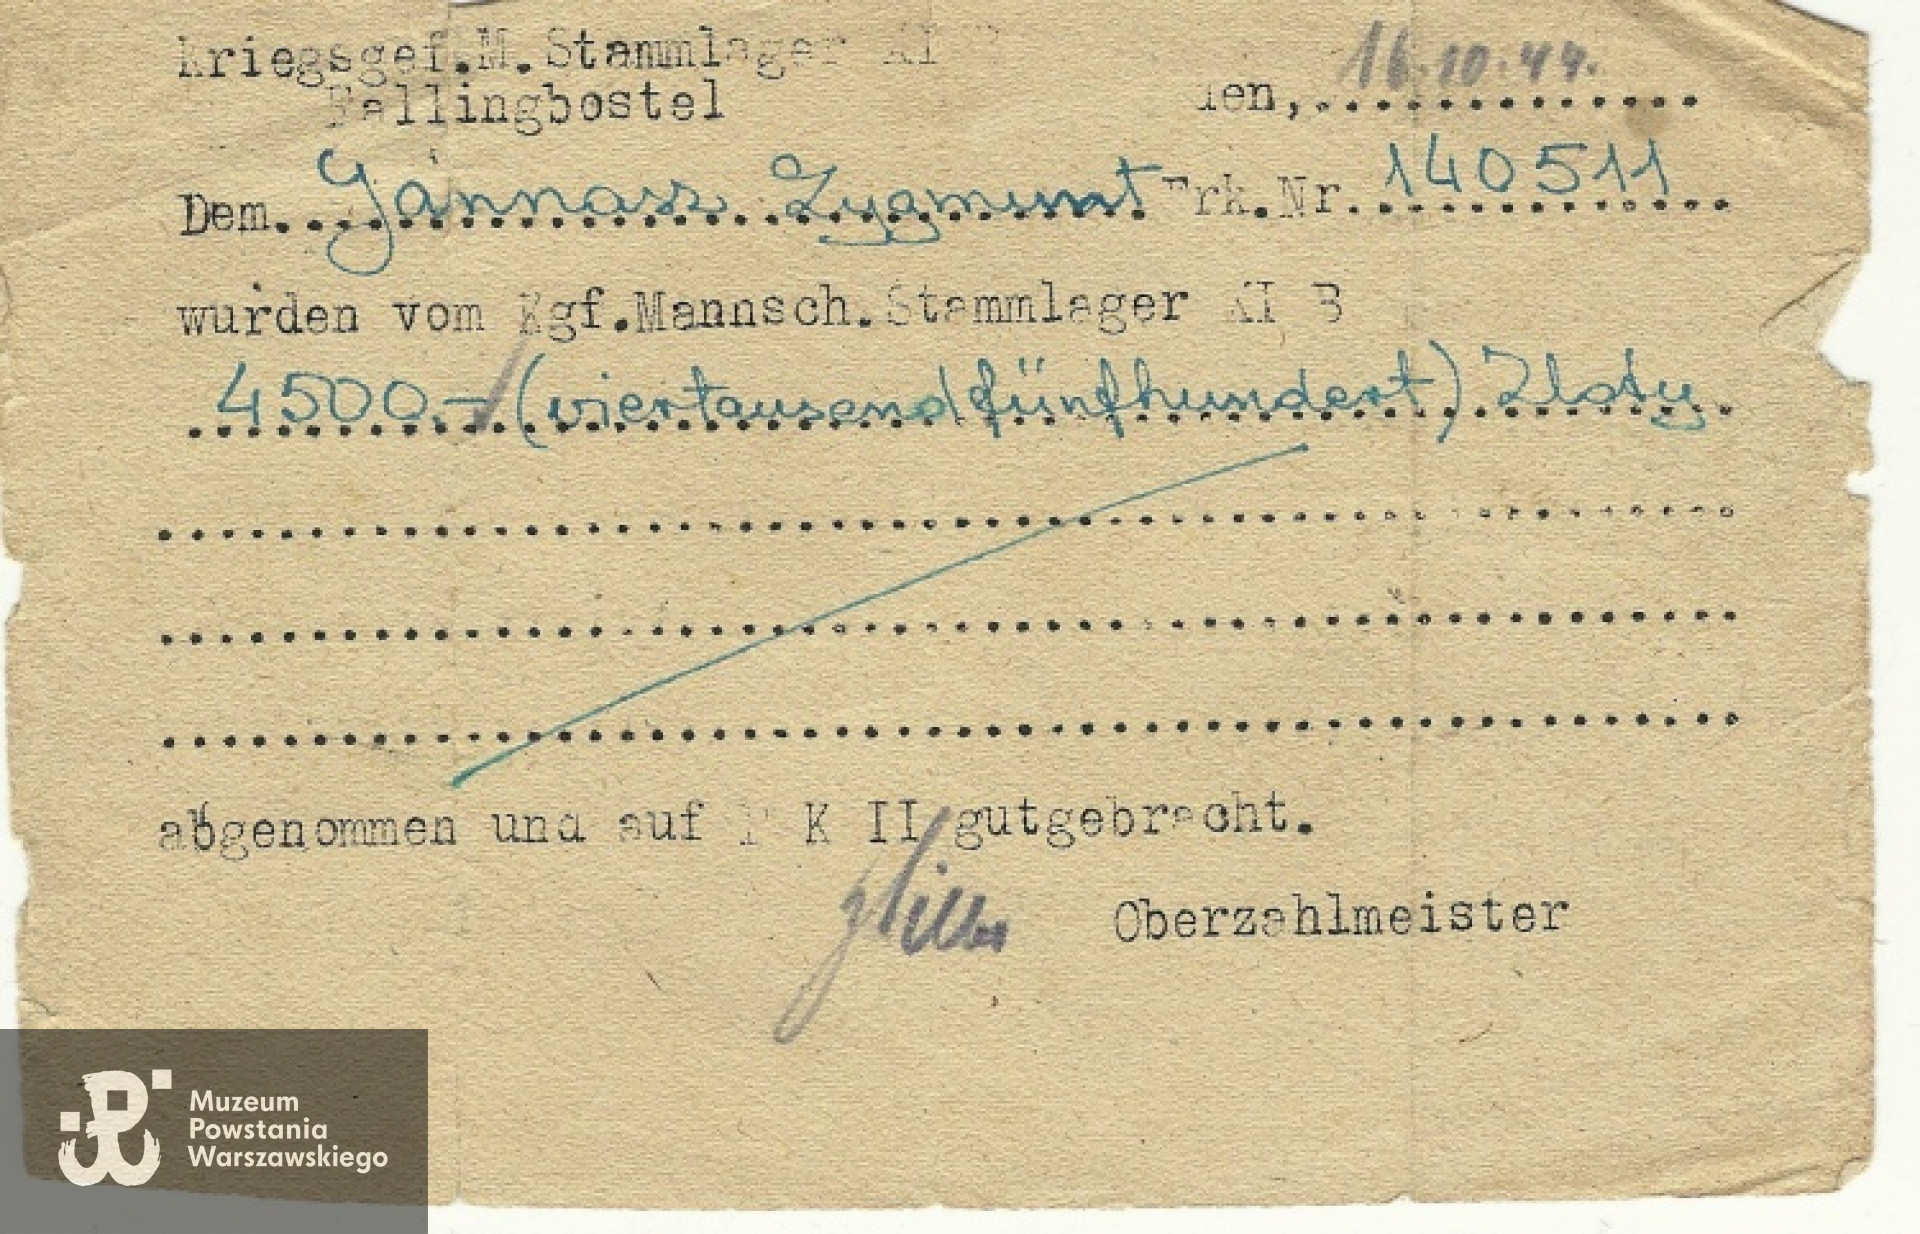 Kriegsgef.M.Stammlager XI B
Fallingbostel
den, 16.10.44.
Dem. Jannasz Zygmunt Erk.Nr. 140511
wurden vom Kgf.Mannsch.Stammlager XI B
4500.- (viertausendfünfhundert) Zloty
abgenommen und auf K II gutgebracht.
Oberzahlmeister
Muzeum
Powstania
Warszawskiego